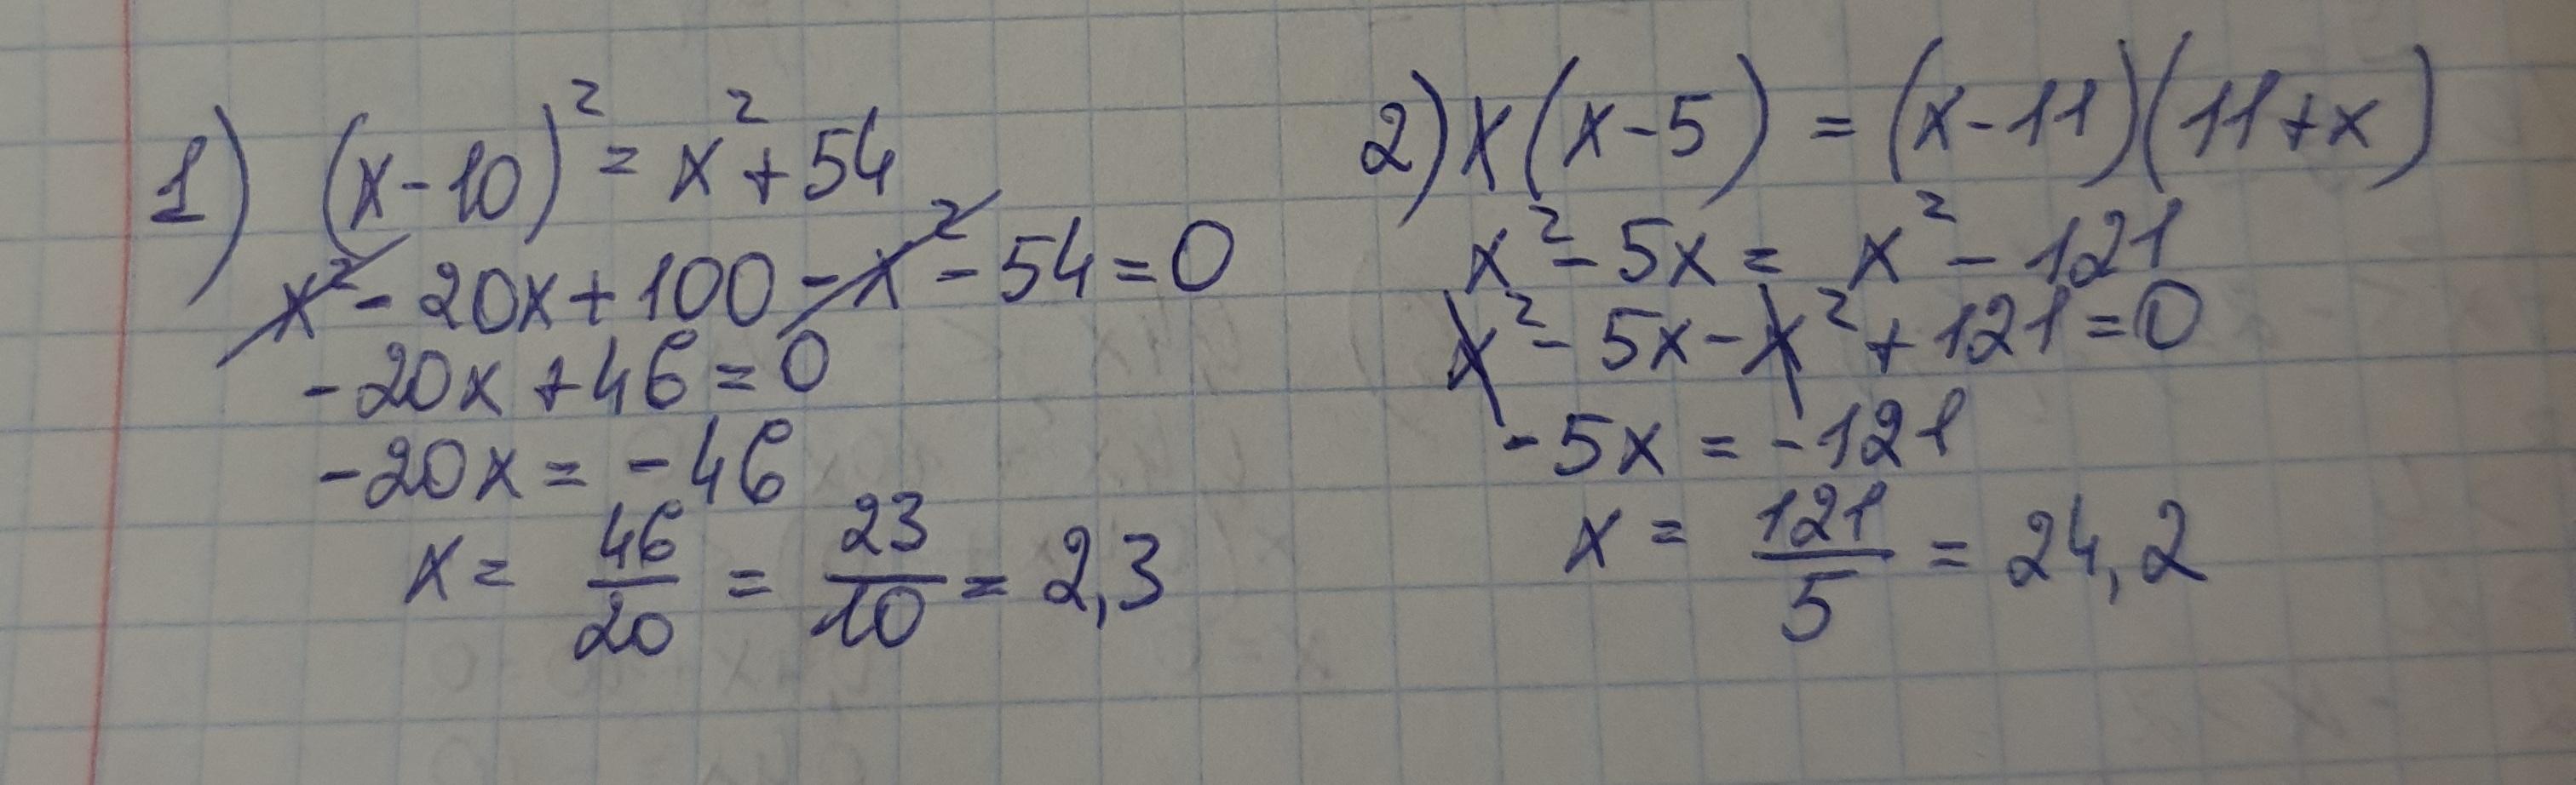 1) (x-10)² = x² + 54
x² - 20x + 100 - x² - 54 = 0
-20x + 46 = 0
-20x = -46
x = 46/20 = 23/10 = 2,3
2) x(x-5) = (x-11)(11+x)
x² - 5x = x² - 121
x² - 5x - x² + 121 = 0
-5x = -121
x = 121/5 = 24,2